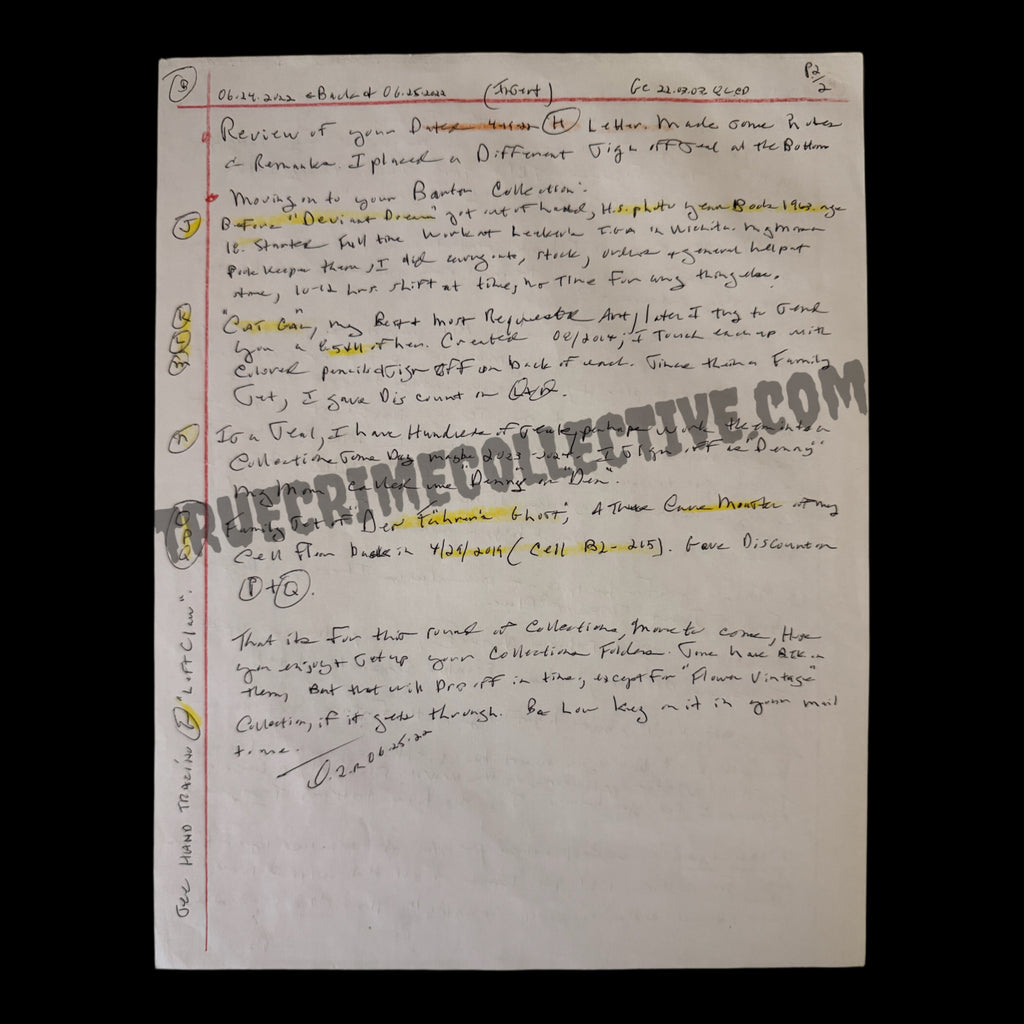 P2/2
B
06.24.2022 & Back at 06.25.2022 (Insert) GC 22.07.02
Review of your Dates H Letter. Made some Notes
& Remarks. I placed a Different Sign off Seal at the Bottom
Moving on to your Banton Collection:
J
Before "Deviant Dream" got out of hand, H.S. photo year Book 1963. age
18. Started Full time Work at Leekers I.G.A in Wichita. My Mom a
Book Keeper there, I did carry outs, stock, orders + general help at
store, 10-12 hrs. shift at time, no Time For any thing else.
"Cat Gal", my Best & Most Requested Art, later I try to send
you a of her. Created 08/2014, I Touch each up with
colored pencil & Sign off on back of each. Since their a Family
Set, I gave Discount on
Is a Seal, I have Hundreds of Seals, perhaps Work them into a
Collections Some Day maybe 2023-2024. I Sign off as "Denny"
My Mom called me "Denny" or "Den".
Family Set of "Der Führer's Ghost", A True Cave Monster of my
cell Floor back in 4/29/2019 (Cell B2-215). Gave Discount on
P + Q.
That its For this round of Collections, More to come, Hope
you enjoy & set up your Collections Folders. Some have in
them, But that will Drop off in time, except For "Flower Vintage"
Collection, if it gets through. Be Low Key on it in your mail
to me.
D.L.R 06.25.22
See HAND TRACING "Left Claw".
TRUECRIMECOLLECTIVE.COM